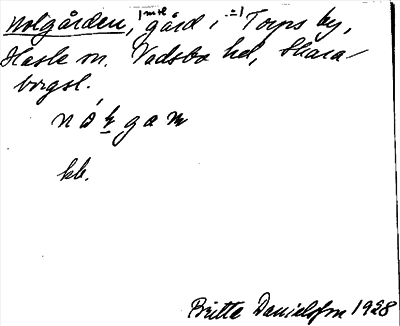 Nolgården, 1 mtl gård i Torps by,
Hasle sn. Vadsbo hd, Skara-
borgsl.
kb.
Britta Danielson 1928